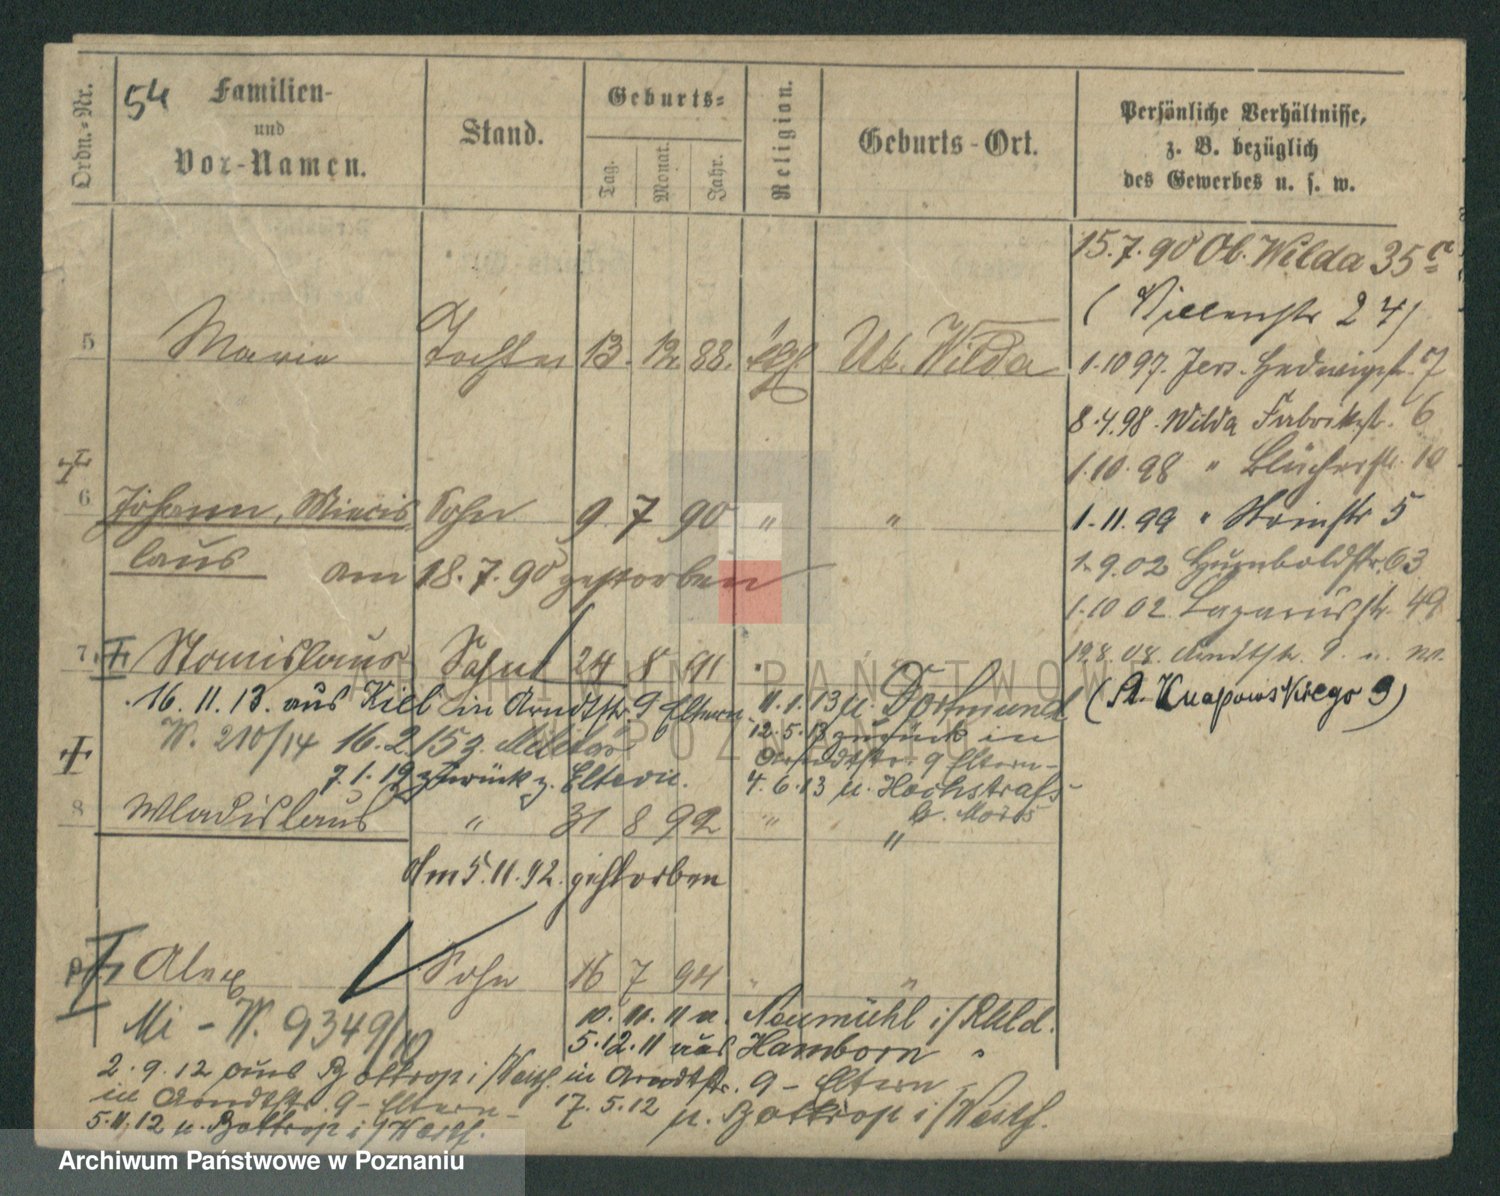 Ordn.-Nr.
54
Familien-
und
Vor-Namen.
Stand.
Geburts-
Tag.
Monat.
Jahr.
Religion.
Geburts-Ort.
Persönliche Verhältnisse,
z. B. bezüglich
des Gewerbes u. s. w.
15.7.90 Ob. Wilda 35a
(Villenstr 24)
5 Maria Tochter 13. 12. 88. kath Ut. Wilda
1.10 97. Jers. Hedwigst. 7
8.4.98. Wilda Fabrikst. 6
1.10.98 " Blücherstr. 10
6 Johann, Miecis Sohn 9 7 90 " "
1.11.99 " Steinstr 5
laus am 18.7.90 gestorben
1.9.02 Humboldtstr. 63
1.10 02 Lazarusstr. 49
7. Stanislaus Sohn 24 8 91
19.8.08. Arndtstr. 9
(A. Knapowskiego 9)
16.11.13. aus Kiel in Arndtstr. 9 Eltern
11.1.13 n. Dortmund
W. 210/14 16.2.15 z. Militär
12.5.13 zurück in
Arndtstr. 9 Eltern-
7.1.19 zurück z. Eltern.
4.6.13 n. Hochstraß
b. Moers
8 Wladislaus " 31 8 92 " "
Am 5.11.92. gestorben
9 Alex Sohn 16 7 94 " "
Mi - W. 9349/10
10.11.11 n. Neumühl i/Rhld.
5.12.11 aus Hamborn
2.9.12 aus Bottrop i/Westf. in Arndtstr. 9 - Eltern
in Arndtstr. 9 - Eltern -
17.5.12 n. Bottrop i/Westf.
5.11.12 n. Bottrop i/Westf.
ARCHIWUM PAŃSTWOWE
W POZNANIU
Archiwum Państwowe w Poznaniu